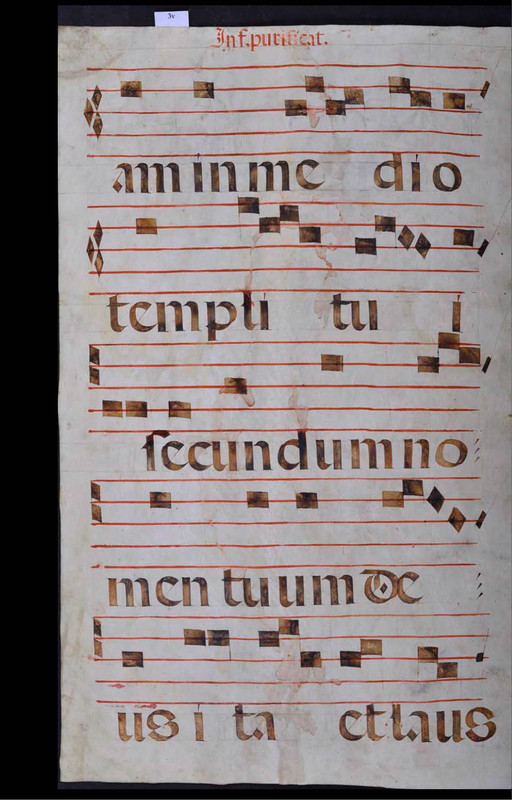 3v
In f. purificat.
am in me dio
templi tu i
secundum no
men tuum de
us i ta et laus